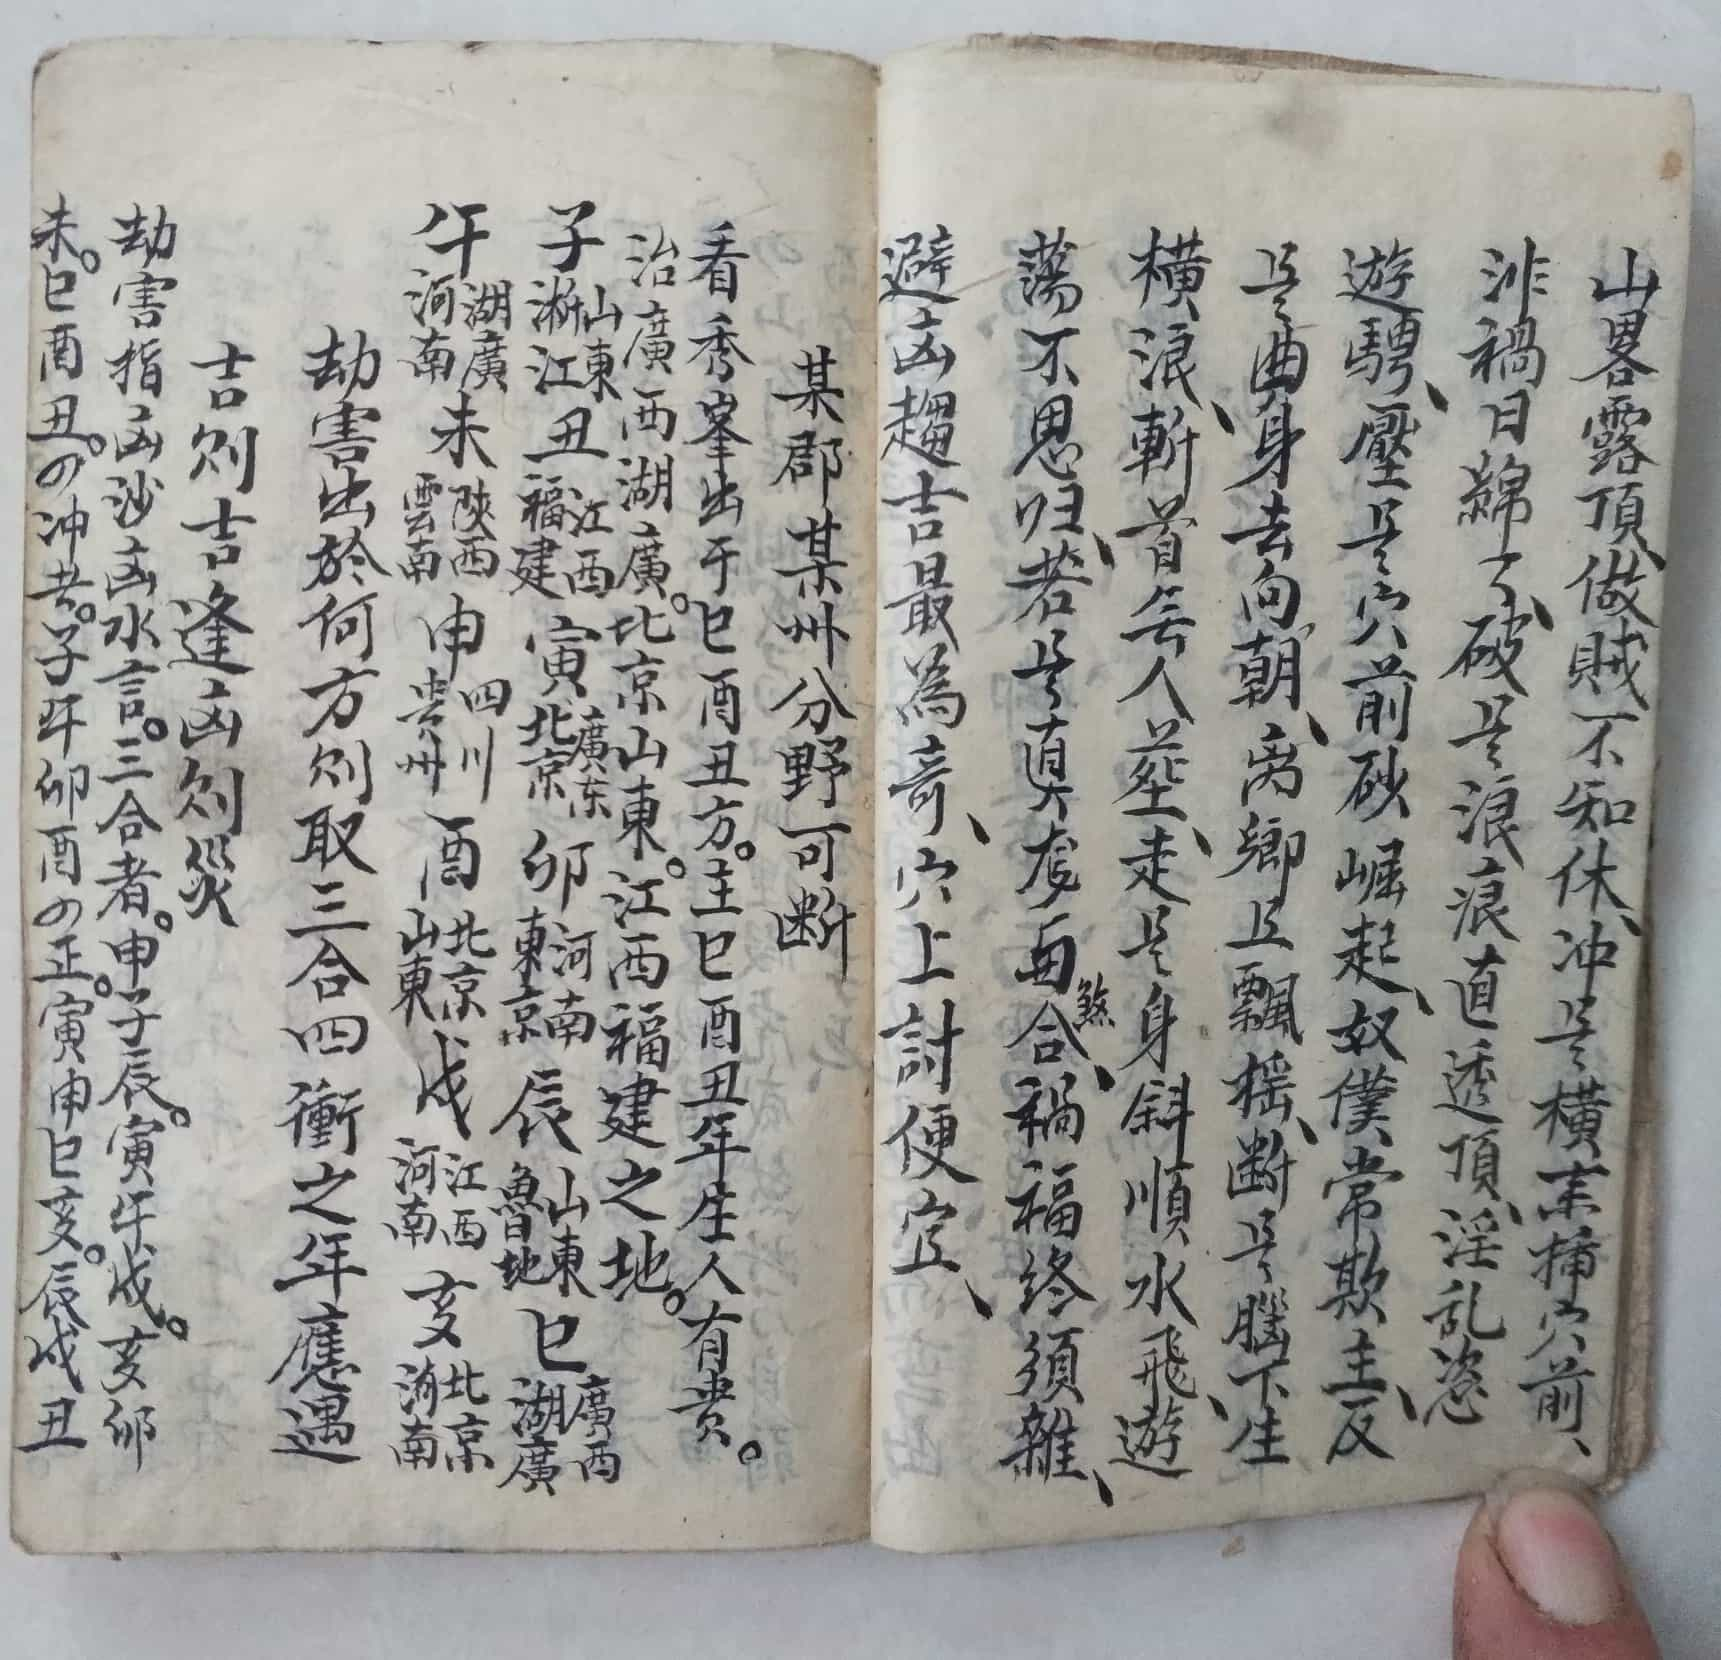 山畧露頂、做賊不知休、冲是横来揷穴前、
非禍日綿了、破是浪痕直透頂、淫乱恣
遊騁、壓是穴前砂崛起、奴僕常欺主、反
是曲身去向朝、离鄉且飄摇、断是腦下生
横浪、斬首無人塟、走是身斜順水飛、遊
蕩不思归、若是真龙面合煞、禍福终須離、
避凶趨吉最為竒、穴上討便宜、
某郡某州分野可断
看秀峯出于巳酉丑方。主巳酉丑年生人有贵。
治廣西湖廣。北京山東。江西福建之地。
子山東淅江丑江西福建寅廣东北京卯河南東京辰山東魯地巳廣西湖廣
午湖廣河南未陝西雲南申四川贵州酉北京山東戌江西河南亥北京湳南
劫害出於何方則取三合四衝之年應遇
吉則吉逢凶則災
劫害指凶沙凶水言。三合者。申子辰。寅午戌。亥卯
未。巳酉丑。四冲者。子午卯酉四正。寅申巳亥。辰戌丑